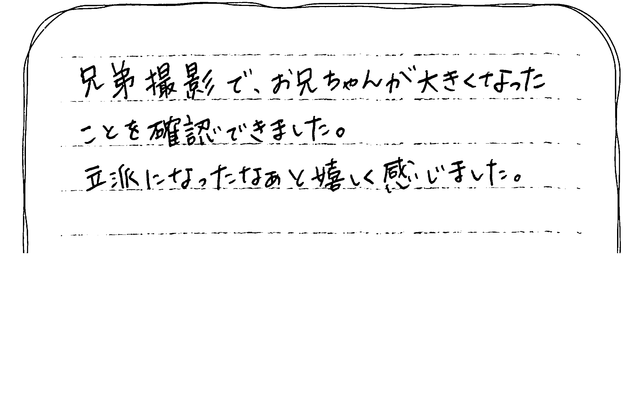 兄弟撮影で、お兄ちゃんが大きくなった
ことを確認できました。
立派になったなぁと嬉しく感じました。